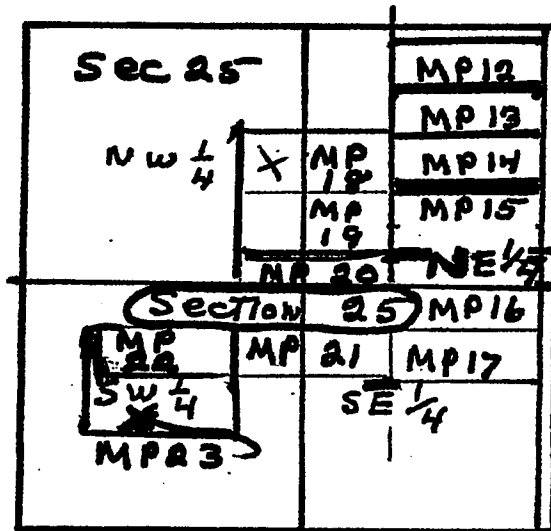 Sec 25
MP 12
MP 13
NW 1/4
X MP 18
MP 14
MP 19
MP 15
MP 20
NE 1/4
Section 25
MP 16
MP 22
MP 21
MP 17
SW 1/4
SE 1/4
MP 23